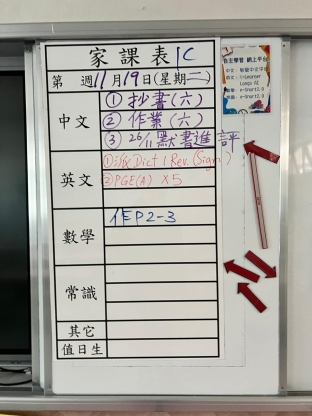 家課表 1C
第 週11月19日(星期二)
中文
① 抄書(六)
② 作業(六)
③ 26/11默書進評
英文
①派Dict 1 Rev. (Sign)
②PGE(A) X5
數學
作P2-3
常識
其它
值日生
自主學習 網上平台